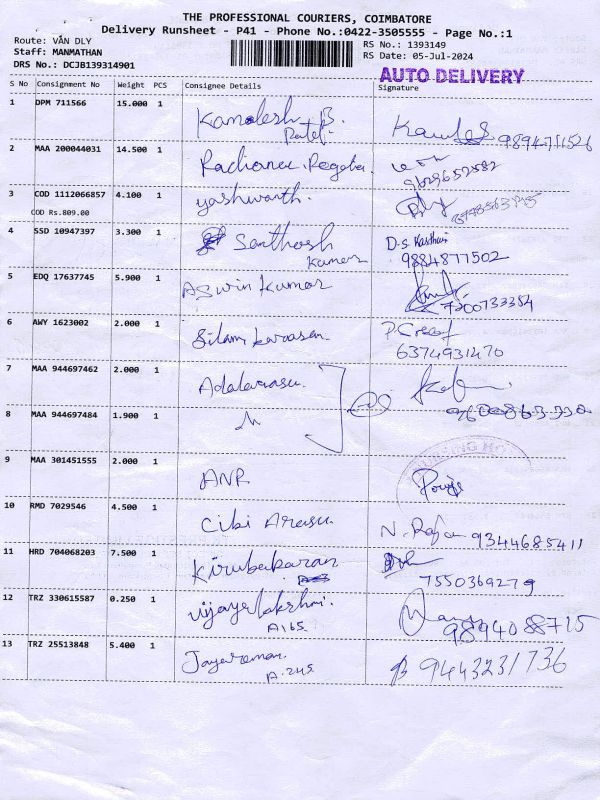 THE PROFESSIONAL COURIERS, COIMBATORE
Delivery Runsheet - P41 - Phone No.:0422-3505555 - Page No.:1
Route: VAN DLY
RS No.: 1393149
Staff: MANMATHAN
RS Date: 05-Jul-2024
DRS No.: DCJB139314901
AUTO DELIVERY
S No Consignment No Weight PCS Consignee Details Signature
1 DPM 711566 15.000 1 Kamalesh B.
Patel
2 MAA 200044031 14.500 1 9629652582
3 COD 1112066857 4.100 1 yashwanth.
COD Rs.809.00
4 SSD 10947397 3.300 1 Santhosh D.S
Kumar 9884877502
5 EDQ 17637745 5.900 1 Aswin Kumar
7200733354
6 AWY 1623002 2.000 1
6374931470
7 MAA 944697462 2.000 1
8 MAA 944697484 1.900 1
9 MAA 301451555 2.000 1 ANR
10 RMD 7029546 4.500 1 Cibi Arasu. N. 9344685411
11 HRD 704068203 7.500 1 Kirubakaran
7550369279
12 TRZ 330615587 0.250 1 Vijayalakshmi.
A165 9894088715
13 TRZ 25513848 5.400 1 Jayaraman. 9443231736
A.245